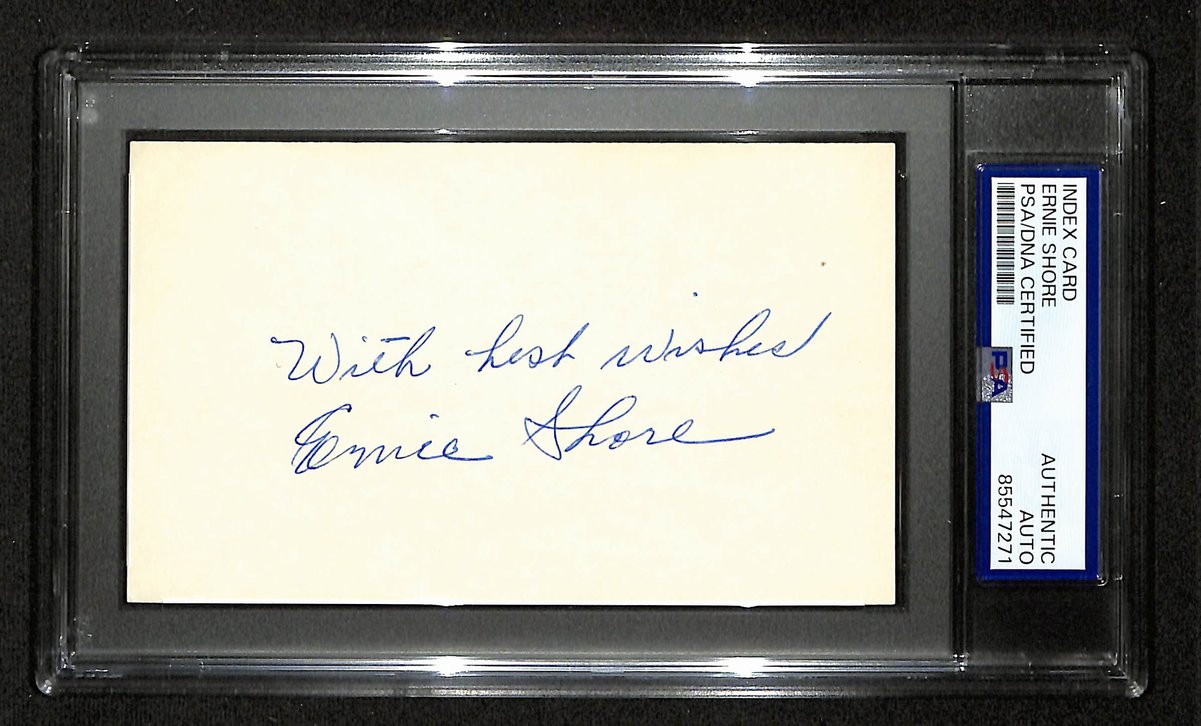 With best wishes
Ernie Shore
INDEX CARD
ERNIE SHORE
PSA/DNA CERTIFIED
PSA
AUTHENTIC
AUTO
85547271